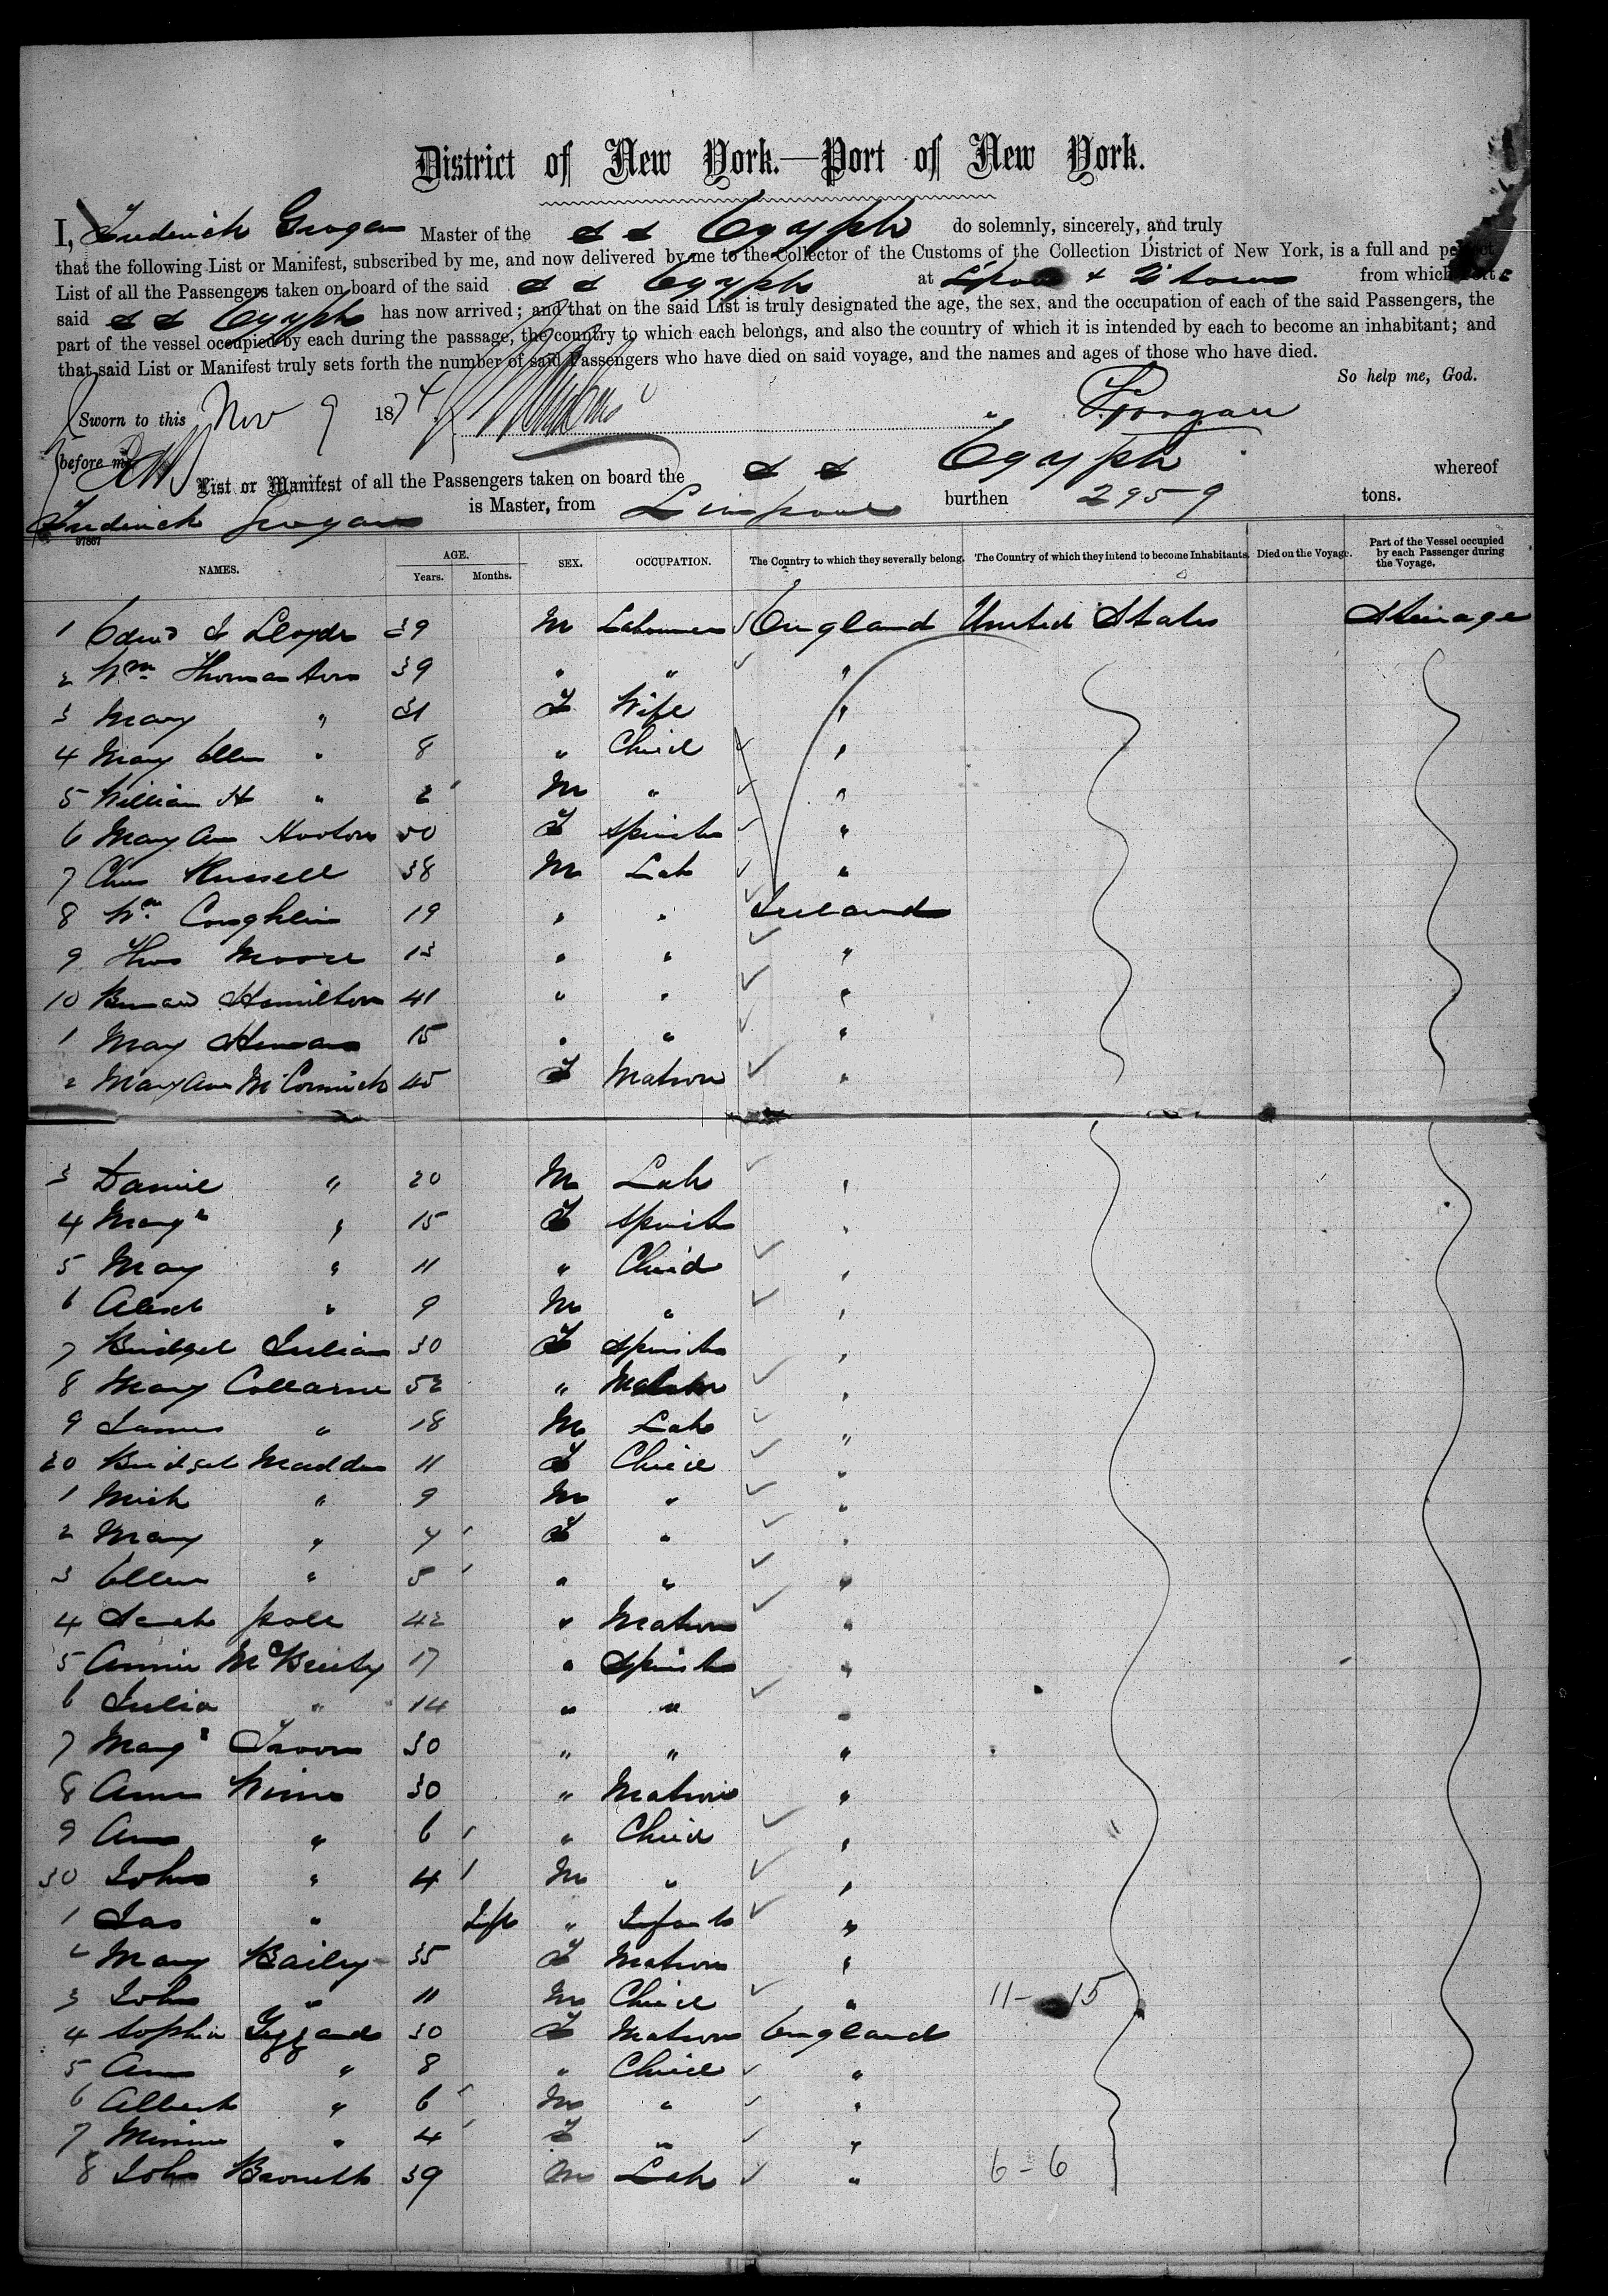 District of New York.—Port of New York.
I, Frederick Grogan Master of the S S Egypt do solemnly, sincerely, and truly
that the following List or Manifest, subscribed by me, and now delivered by me to the Collector of the Customs of the Collection District of New York, is a full and perfect
List of all the Passengers taken on board of the said S S Egypt at L'pool & Q'town from which Port
said S S Egypt has now arrived; and that on the said List is truly designated the age, the sex, and the occupation of each of the said Passengers, the
part of the vessel occupied by each during the passage, the country to which each belongs, and also the country of which it is intended by each to become an inhabitant; and
that said List or Manifest truly sets forth the number of said Passengers who have died on said voyage, and the names and ages of those who have died.
So help me, God.
Sworn to this Nov 9 1874 F Grogan
before me
List or Manifest of all the Passengers taken on board the S S Egypt whereof
Frederick Grogan is Master, from Liverpool burthen 2959 tons.
97867
NAMES. AGE. Years. Months. SEX. OCCUPATION. The Country to which they severally belong. The Country of which they intend to become Inhabitants. Died on the Voyage. Part of the Vessel occupied by each Passenger during the Voyage.
1 Edwd J Lloyds 39 M Labourer England United States Steerage
2 Wm Thomas 39 " " "
3 Mary " 31 F Wife "
4 Mary Ellen " 8 " Child "
5 William H " 2 M " "
6 Mary Ann Hooton 50 F Spinster "
7 Chas Russell 38 M Lab "
8 Wm Coughlin 19 " " Ireland
9 Thos Moore 13 " " "
10 Bernard Hamilton 41 " " "
1 Mary 15 " " "
2 Mary Ann McCormick 45 F Matron "
3 Daniel " 20 M Lab "
4 Margt " 15 F Spinster "
5 Mary " 11 " Child "
6 " 9 M " "
7 Bridget Julian 30 F Spinster "
8 Mary 52 " Matron "
9 James " 18 M Lab "
20 Bridget Madden 11 F Child "
1 Mich " 9 M " "
2 Mary " 7 F " "
3 Ellen " 5 " " "
4 Sarah 42 " Matron "
5 Annie 17 " Spinster "
6 Julia " 14 " " "
7 Margt 30 " " "
8 Ann 30 " Matron "
9 Ann " 6 " Child "
30 John " 4 M " "
1 Jas " Inft " Infant "
2 Mary Bailey 35 F Matron "
3 John " 11 M Child " 11 - 15
4 Sophia 30 F Matron England
5 Ann " 8 " Child "
6 Albert " 6 M " "
7 Minnie " 4 F " "
8 John 39 M Lab " 6 - 6